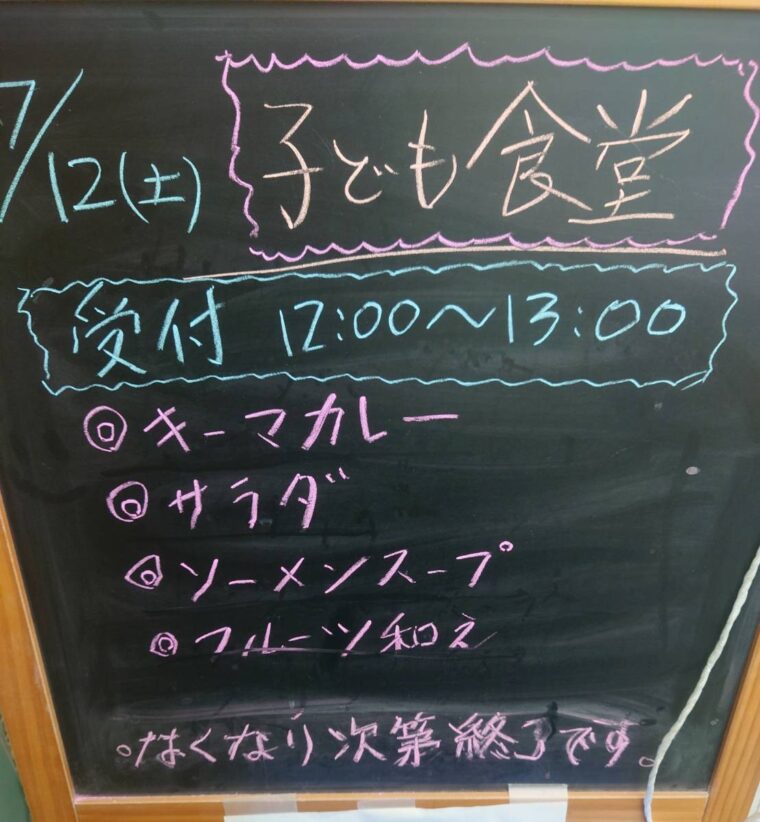 7/12(土) 子ども食堂
受付 12:00～13:00
◎キーマカレー
◎サラダ
◎ソーメンスープ
◎フルーツ和え
。なくなり次第終了です。